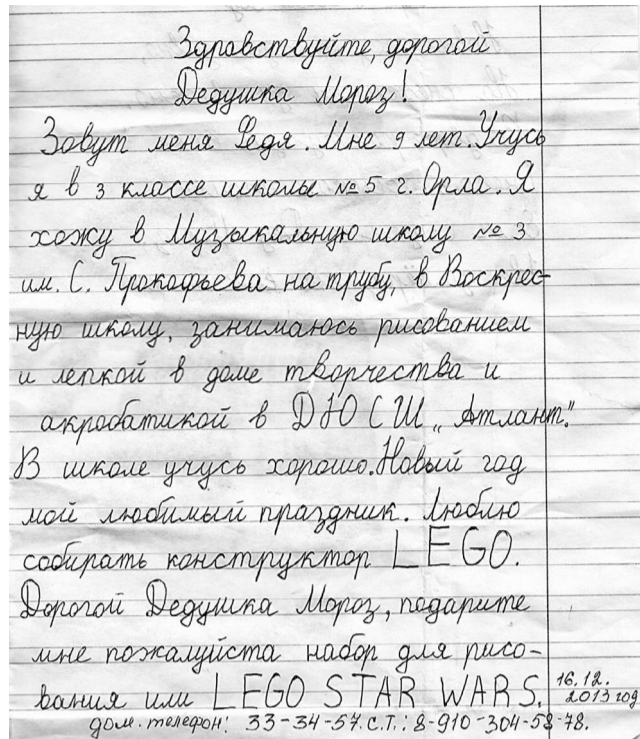 Здравствуйте, дорогой
Дедушка Мороз!
Зовут меня Федя. Мне 9 лет. Учусь
я в 3 классе школы №5 г. Орла. Я
хожу в Музыкальную школу №3
им. С. Прокофьева на трубу, в Воскрес-
ную школу, занимаюсь рисованием
и лепкой в доме творчества и
акробатикой в ДЮСШ „Атлант".
В школе учусь хорошо. Новый год
мой любимый праздник. Люблю
собирать конструктор LEGO.
Дорогой Дедушка Мороз, подарите
мне пожалуйста набор для рисо-
вания или LEGO STAR WARS.
16.12.
2013 год
дом. телефон: 33-34-57. С.Т.: 8-910-304-58-78.